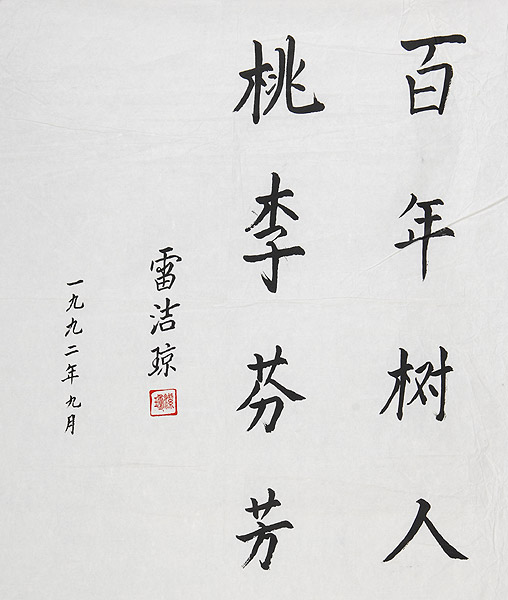 百年树人
桃李芬芳
雷洁琼
一九九二年九月